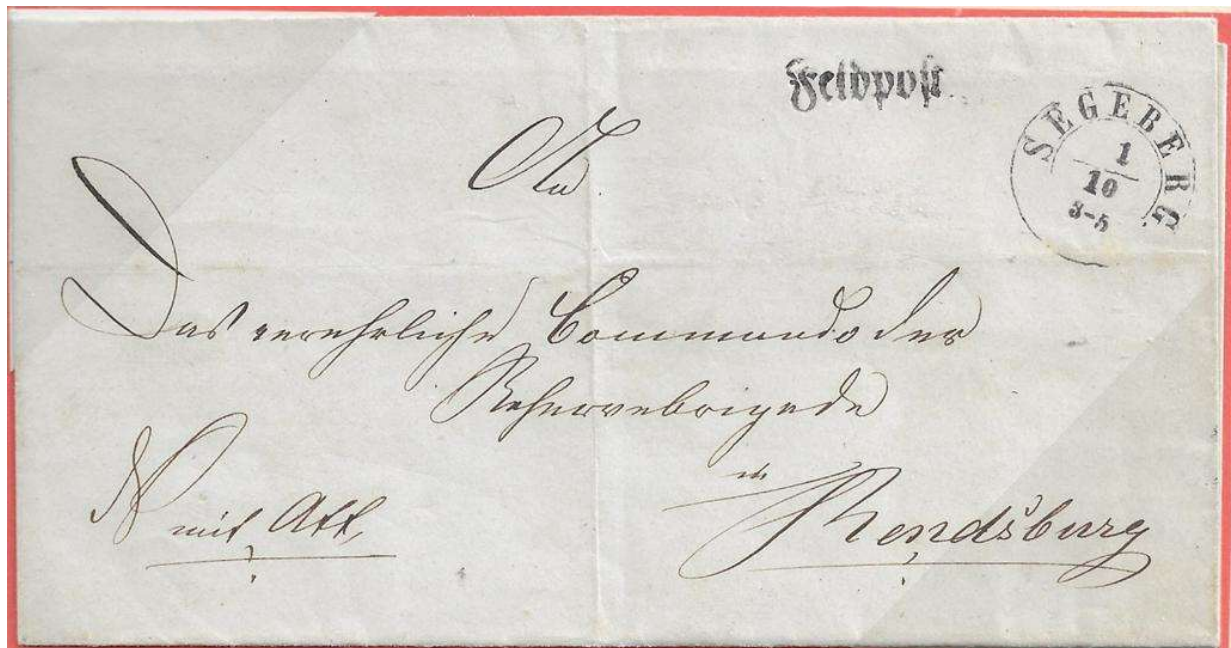 Feldpost
SEGEBERG
1
10
3-5
An
Das verehrliche Commando der
Reservebrigade
mit Att,
in
Rendsburg